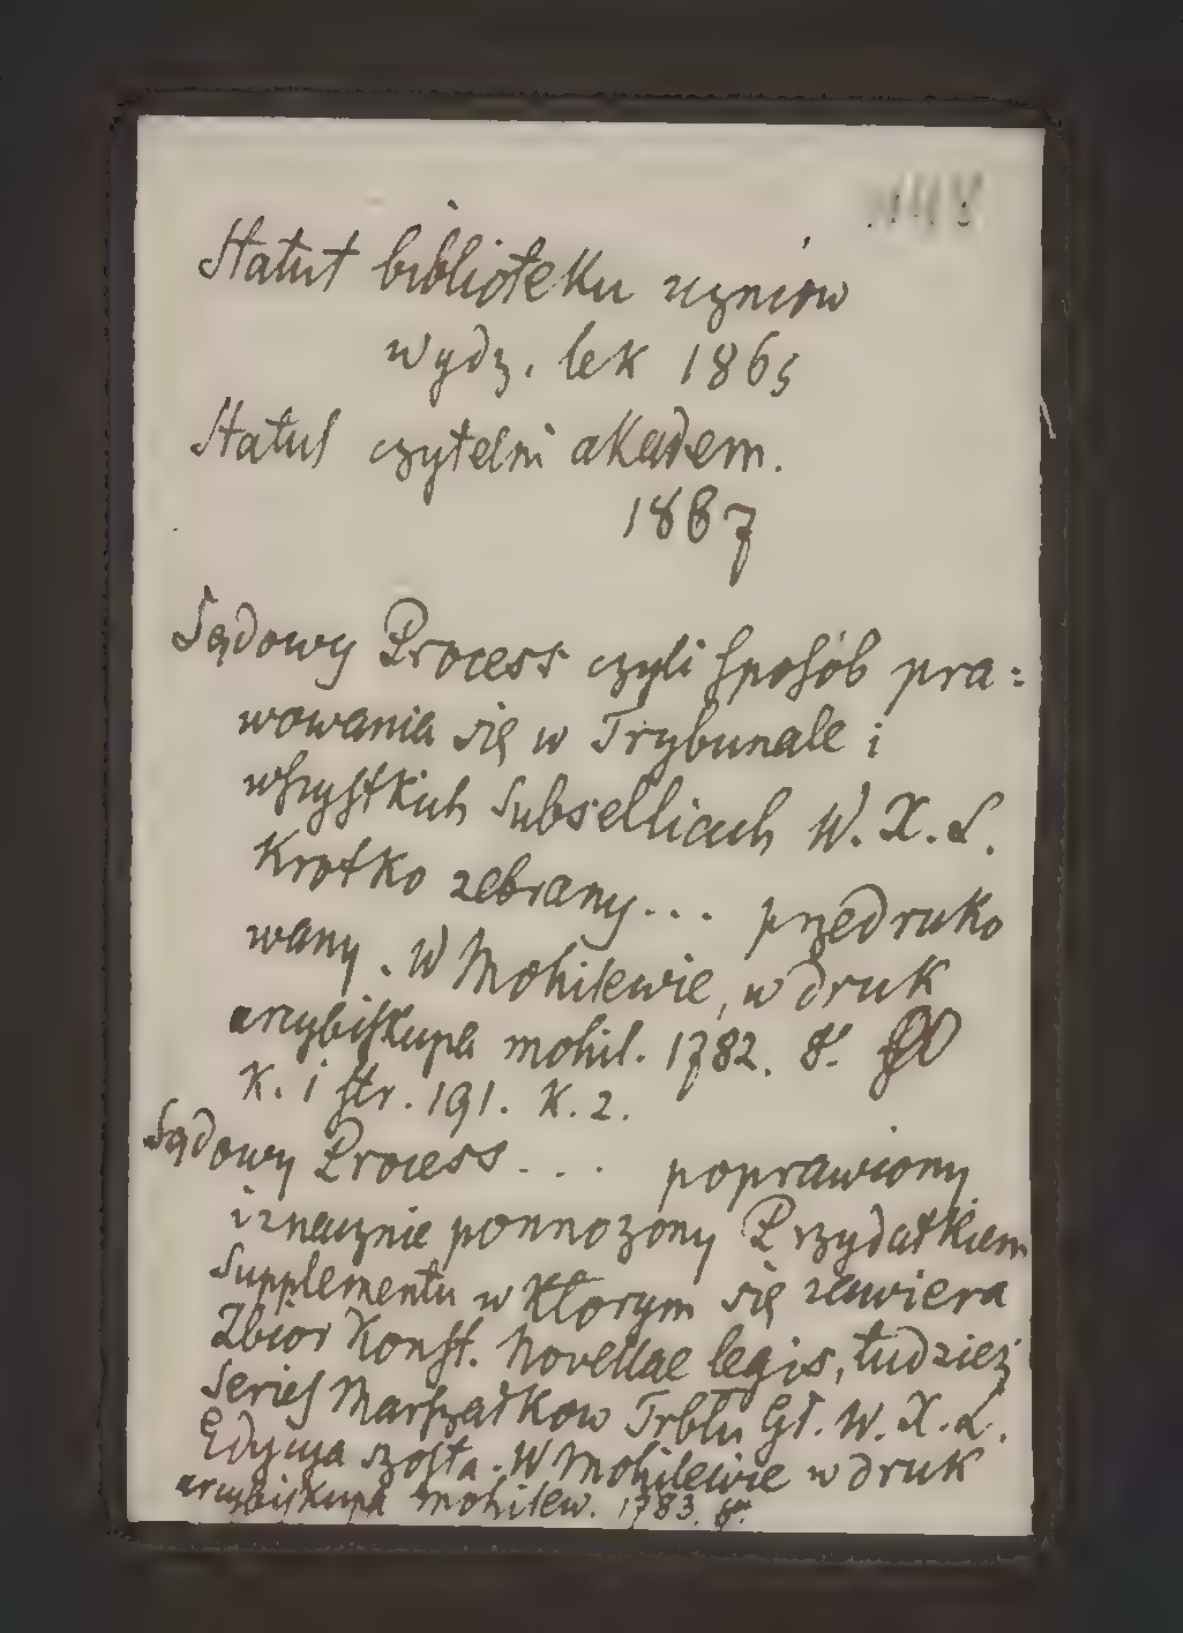 Statut biblioteki uczniów
wydz. lek 1865
Statut czytelni akadem.
1867
Sądowy Process czyli sposób pra=
wowania się w Trybunale i
wszystkich Subselliach W. X. L.
Krotko zebrany... przedruko
wany. W Mohilewie, w druk
arcybiskupa mohil. 1782. 8.
K. i str. 191. K. 2.
Sądowy Process... poprawiony
i znacznie pomnożony Przydatkiem
Supplementu w Ktorym się zawiera
Zbior Konst. Novellae legis, tudzież
Series Marszałkow Trbłu Gł. W. X. L.
Edycya szósta. W Mohilewie w druk
arcybiskupa mohilew. 1783. 8